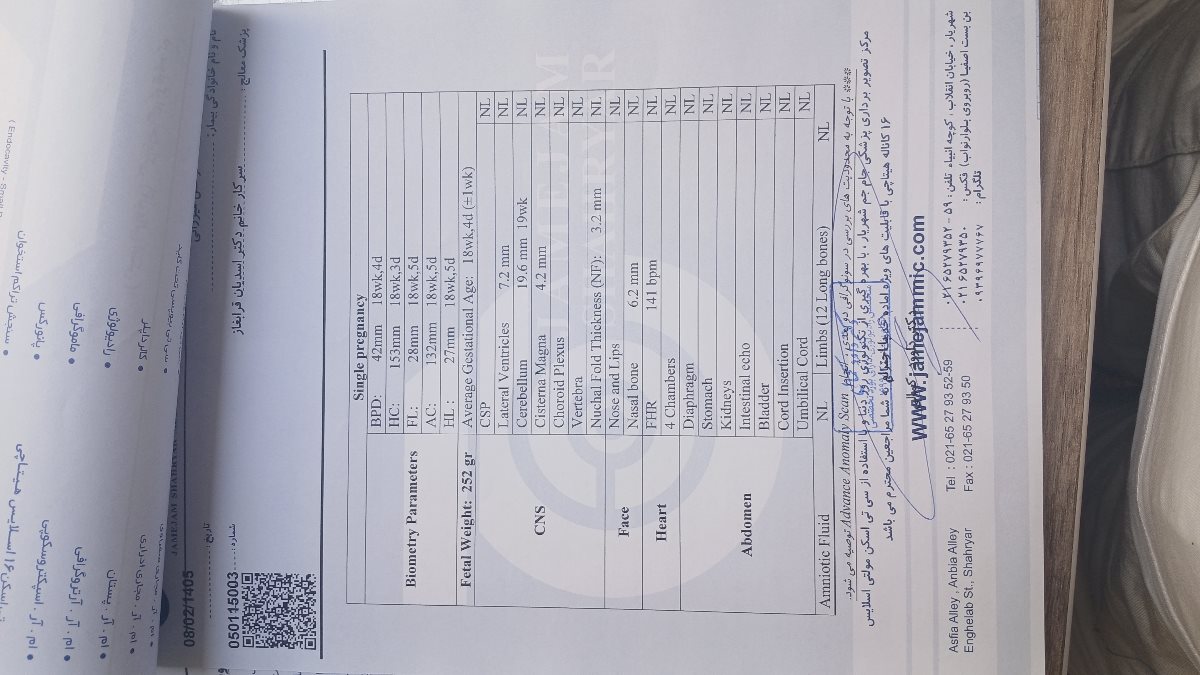 ( Endocavity -
• سنجش تراکم استخوان
• رادیولوژی
• ماموگرافی
• پانورکس
• کالر داپلر
• ام . آر . اسپکتروسکوپی
• ام . آر . آرتروگرافی
• ام . آر . پستان
JAMEJAM SHAHRYAR
08/02/1405
050115003
تاریخ :
شماره :
نام و نام خانوادگی بیمار :
پزشک معالج :
سرکار خانم دکتر اسدیان قراباغار
Single pregnancy
Biometry Parameters
BPD: 42mm 18wk,4d
HC: 153mm 18wk,3d
FL: 28mm 18wk,5d
AC: 132mm 18wk,5d
HL : 27mm 18wk,5d
Fetal Weight: 252 gr Average Gestational Age: 18wk,4d (±1wk)
CNS
CSP NL
Lateral Ventricles 7.2 mm NL
Cerebellum 19.6 mm 19wk NL
Cisterna Magna 4.2 mm NL
Choroid Plexus NL
Vertebra NL
Nuchal Fold Thickness (NF): 3.2 mm NL
Face
Nose and Lips NL
Nasal bone 6.2 mm NL
Heart
FHR 141 bpm NL
4 Chambers NL
Abdomen
Diaphragm NL
Stomach NL
Kidneys NL
Intestinal echo NL
Bladder NL
Cord Insertion NL
Umbilical Cord NL
Amniotic Fluid NL Limbs (12 Long bones) NL
*** با توجه به محدودیت های بررسی در سونوگرافی Advance Anomaly Scan توصیه می شود.
مرکز تصویر برداری پزشکی جام جم شهریار ، با بهره گیری از تکنولوژی روز دنیا و با استفاده از سی تی اسکن مولتی اسلایس
۱۶ کاناله هیتاچی با قابلیت های ویژه آماده شما مراجعین محترم می باشد
www.jamejammic.com
Asfia Alley , Anbia Alley
Enghelab St., Shahryar
Tel : 021-65 27 93 52-59
Fax : 021-65 27 93 50
شهریار ، خیابان انقلاب ، کوچه انبیاء
بن بست اصفیا (روبروی بلوار نواب)
تلفن : ۵۹ - ۰۲۱ ۶۵۲۷۹۳۵۲
فکس : ۰۲۱ ۶۵۲۷۹۳۵۰
تلگرام : ۰۹۳۹۶۹۷۷۷۶۷